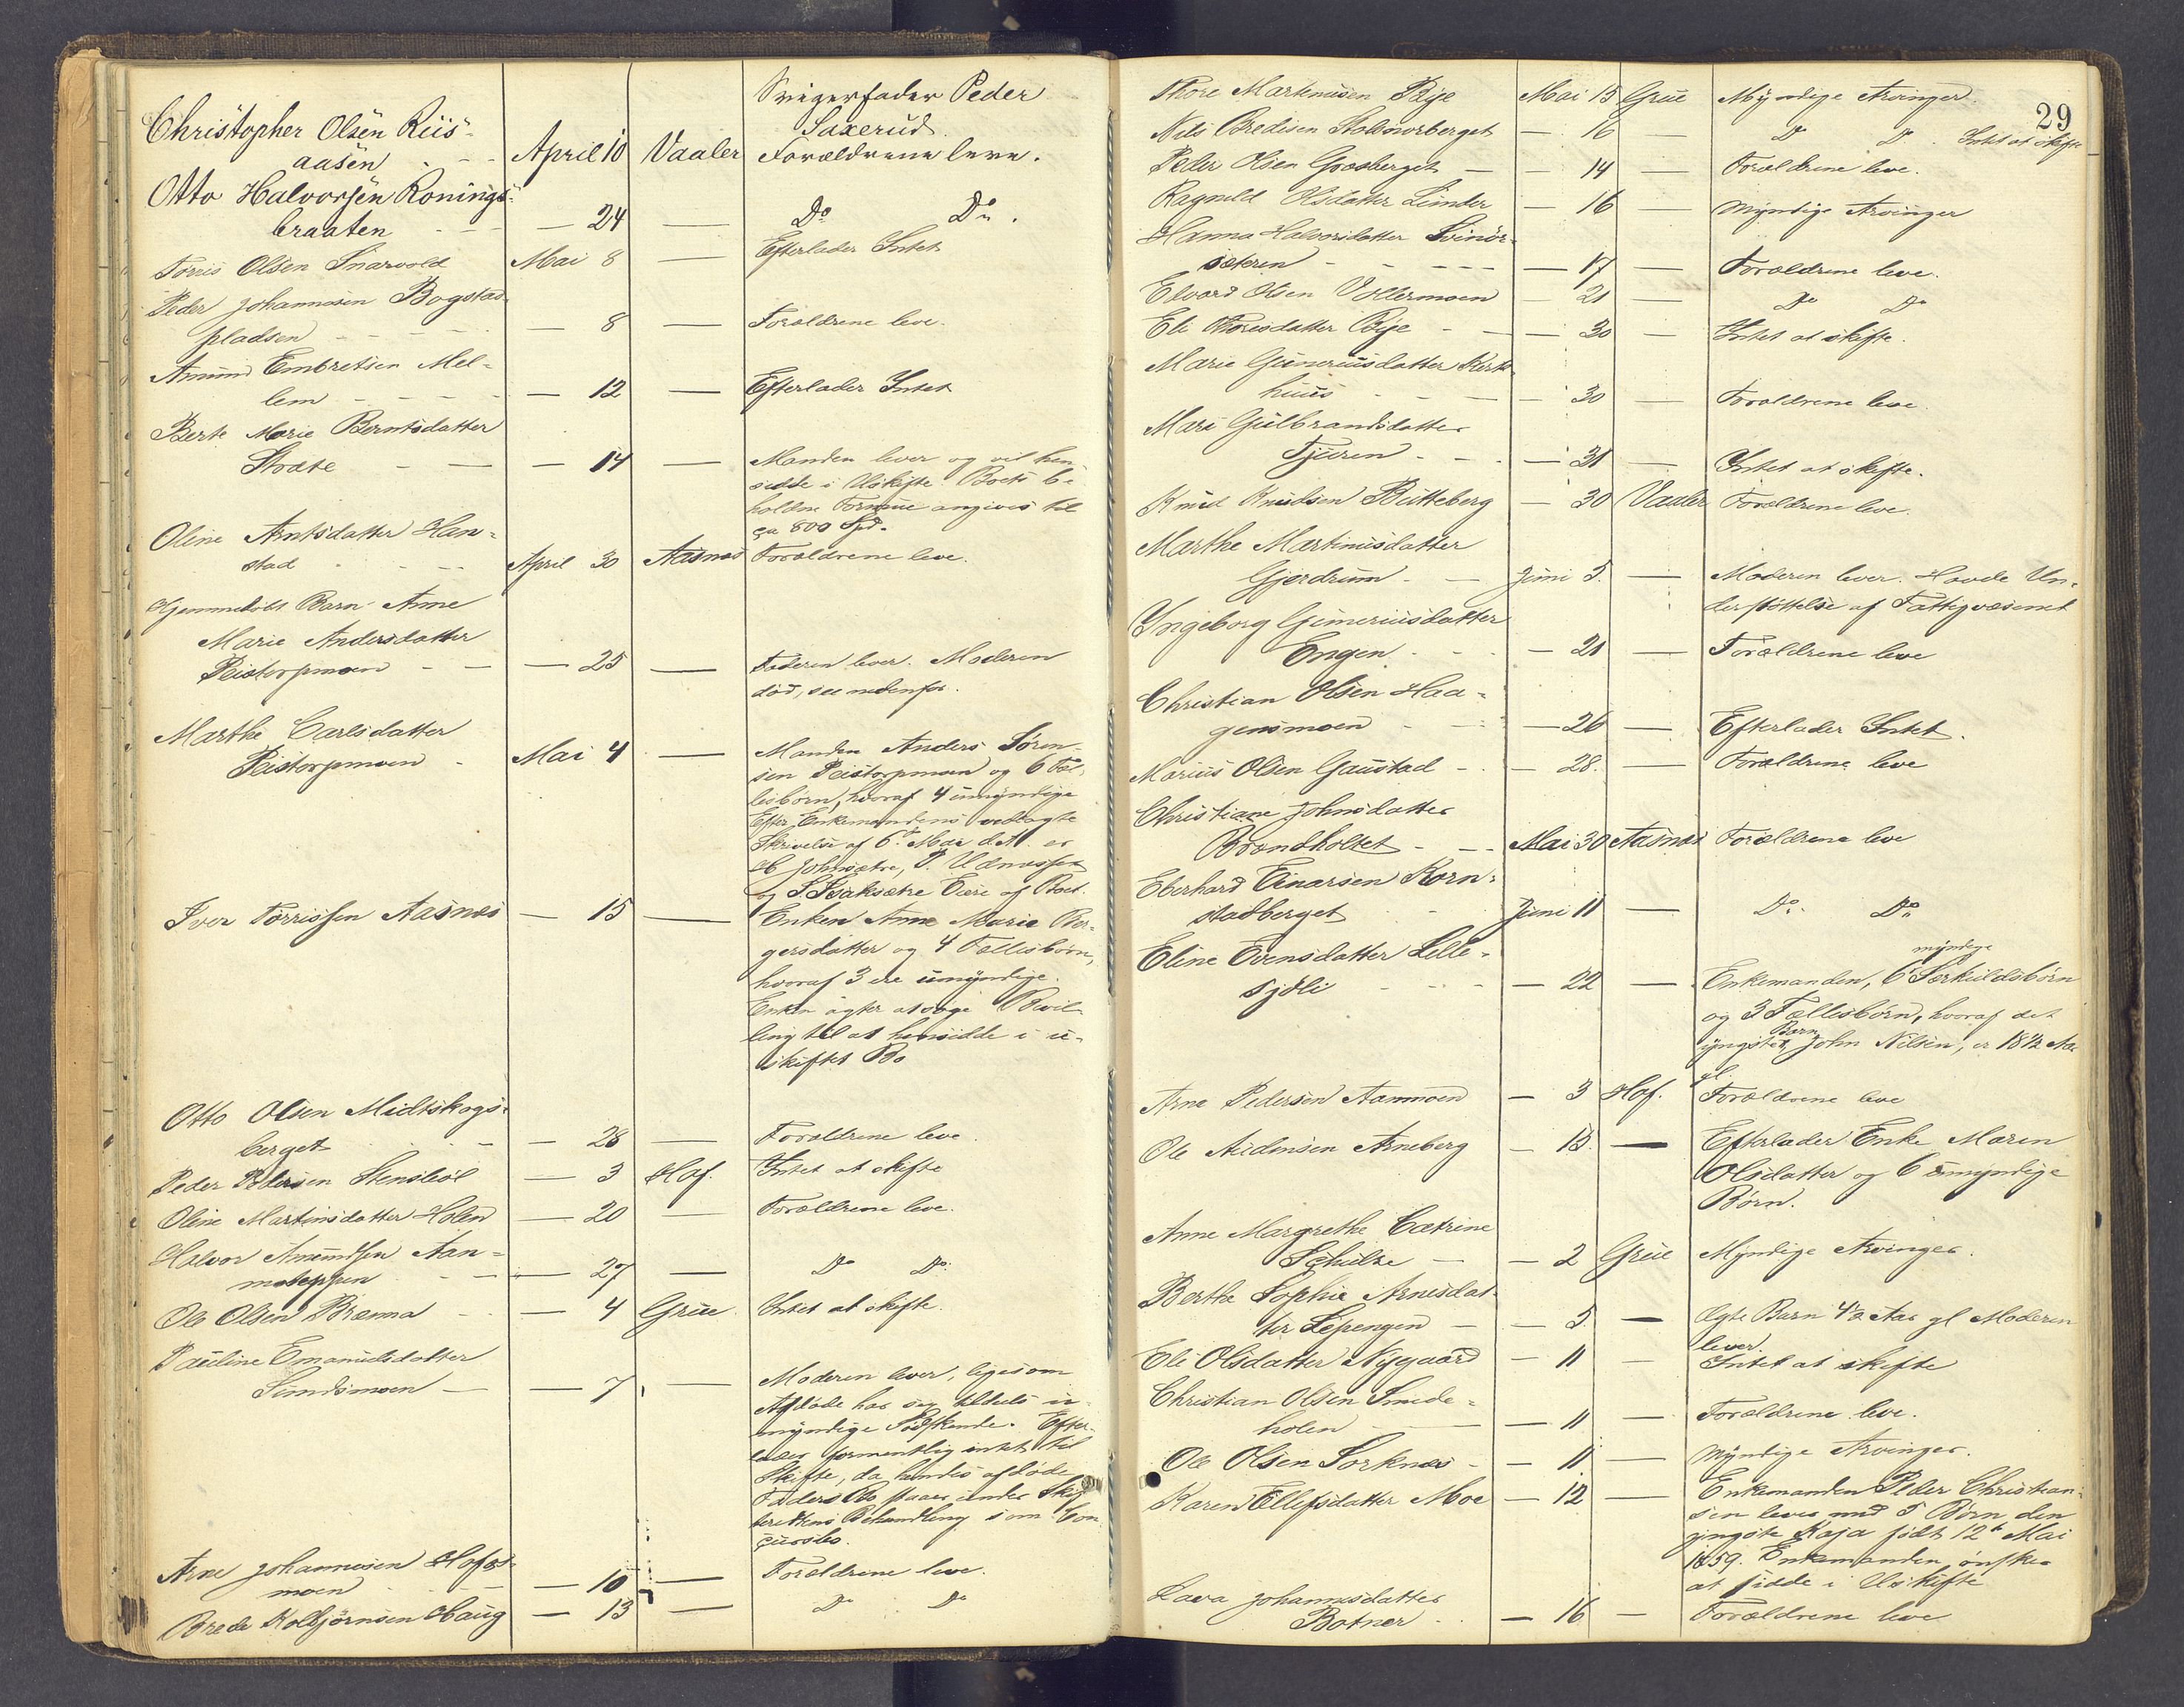 Svigerfader Peder
Saxerud.
Christopher Olsen Riis-
aasen - - April 10 Vaaler Forældrene leve.
Otto Halvorsen Konings-
braaten - - — 24 — Do Do.
Torris Olsen Snarvold Mai 8 — Efterlader Intet
Peder Johannesen Bogstad-
pladsen - - - — 8 — Forældrene leve.
Amund Embretsen Mel-
lem - - - - — 12 — Efterlader Intet
Berte Marie Berntsdatter
Stræte - - — 14 — Manden lever og vil hen-
sidde i Uskifte. Boets be-
holdne Formue angives til
ca 800 Spd.
Oline Arntsdatter Han-
stad - - April 30 Aasnæs Forældrene leve.
Hjemmedøbt Barn Anne
Marie Andersdatter
Peistorpmoen - - — 25 — Faderen lever. Moderen
død, see nedenfor.
Marthe Carlsdatter
Peistorpmoen - Mai 4 — Manden Anders Søren-
sen Peistorpmoen og 6 Fæl-
lesbørn, hvoraf 4 umyndige
Efter Enkemandens vedlagte
Skrivelse af 6te Mai d.A. er
og Eiere af Boet.
Iver Torrissen Aasnæs — 15 — Enken Anne Marie Bir-
gersdatter og 4 Fællesbørn,
hvoraf 3 ere umyndige.
Enken agter at søge Bevil-
ling til at hensidde i u-
skiftet Bo
Otto Olsen Midtskogs-
berget - — 28 — Forældrene leve.
Peder Pedersen Stensliøl — 3 Hof. Intet at skifte
Oline Martinsdatter Holen — 20 — Forældrene leve.
Halvor Amundsen Aan-
- — 27 — Do Do.
Ole Olsen Bræma - — 4 Grue Intet at skifte.
Pauline Emanuelsdatter
Sundsmoen - — 7 — Moderen lever, ligesom
Afdøde har sig tildels u-
myndige Sødskende. Efter-
lader formentlig intet til
Skifte, da hendes afdøde
Faders Bo staaer under Skif-
terettens Behandling som Con-
cursbo.
Arne Johannesen Hofos-
moen - - - — 10 — Forældrene leve.
Brede Kolbjørnsen Haug — 13 — Do Do
29
Thore Martinusen Bye Mai 15 Grue Myndige Arvinger.
Nils Bredesen — 16 — Do Do. Intet at skifte
Peder Olsen Graaberget — — 14 — Forældrene leve.
Ragnild Olsdatter Lunder — 16 — Myndige Arvinger
Hanna Halvorsdatter Svenør-
sæteren - - - — 17 — Forældrene leve.
Edvard Olsen Vollermoen — 21 — Do Do
Eli Thoresdatter Bye - — 30 — Intet at skifte.
Marie Guneriusdatter Kirk-
huus - - — 30 — Forældrene leve
Mari Gulbrandsdatter
Tjuren - - — 31 — Intet at skifte.
Knud Knudsen Butteberg — 30 Vaaler Forældrene leve.
Marthe Martinusdatter
Gjerdrum - — Juni 5. — Moderen lever. Havde Un-
derstøttelse af Fattigvæsenet
Ingeborg Guneriusdatter
Engen - - — 21 — Forældrene leve
Christian Olsen Haa-
gensmoen - — 26 — Efterlader Intet.
Marius Olsen Gaustad - — 28. — Forældrene leve
Christiane Johnsdatter
Brændholtet - — Mai 30 Aasnæs Forældrene leve
Eberhard Einarsen Korn-
stadberget - Juni 11 — Do. Do.
Eline Evensdatter Lille-
sjøli - - - — 22 — Enkemanden, 6 myndige Særkuldsbørn
og 3 Fællesbørn, hvoraf det
yngste Barn, John Nilsen, er 18½ Aar
gl.
Arne Pedersen Aanmoen — 3 Hof. Forældrene leve
Ole Audensen Arneberg — 15 — Efterlader Enke Maren
Olsdatter og 6 umyndige
Børn.
Anne Margrethe Catrine
Schulze — — 2 Grue Myndige Arvinger.
Berthe Sophie Arnesdat-
ter Lepengen — — 5 — Ægte Barn 4½ Aar gl Moderen
lever.
Eli Olsdatter Nygaard — 11 — Intet at skifte
Christian Olsen Smede-
holen — — 11 — Forældrene leve.
Ole Olsen Sorknæs - — 11 — Myndige Arvinger.
Karen Ellefsdatter Moe — 12 — Enkemanden Peder Christian-
sen lever med 5 Børn den
yngste Kaja født 12te Mai
1859. Enkemanden ønsker
at sidde i Uskifte
Lava Johannesdatter
Botner - — 16 — Forældrene leve